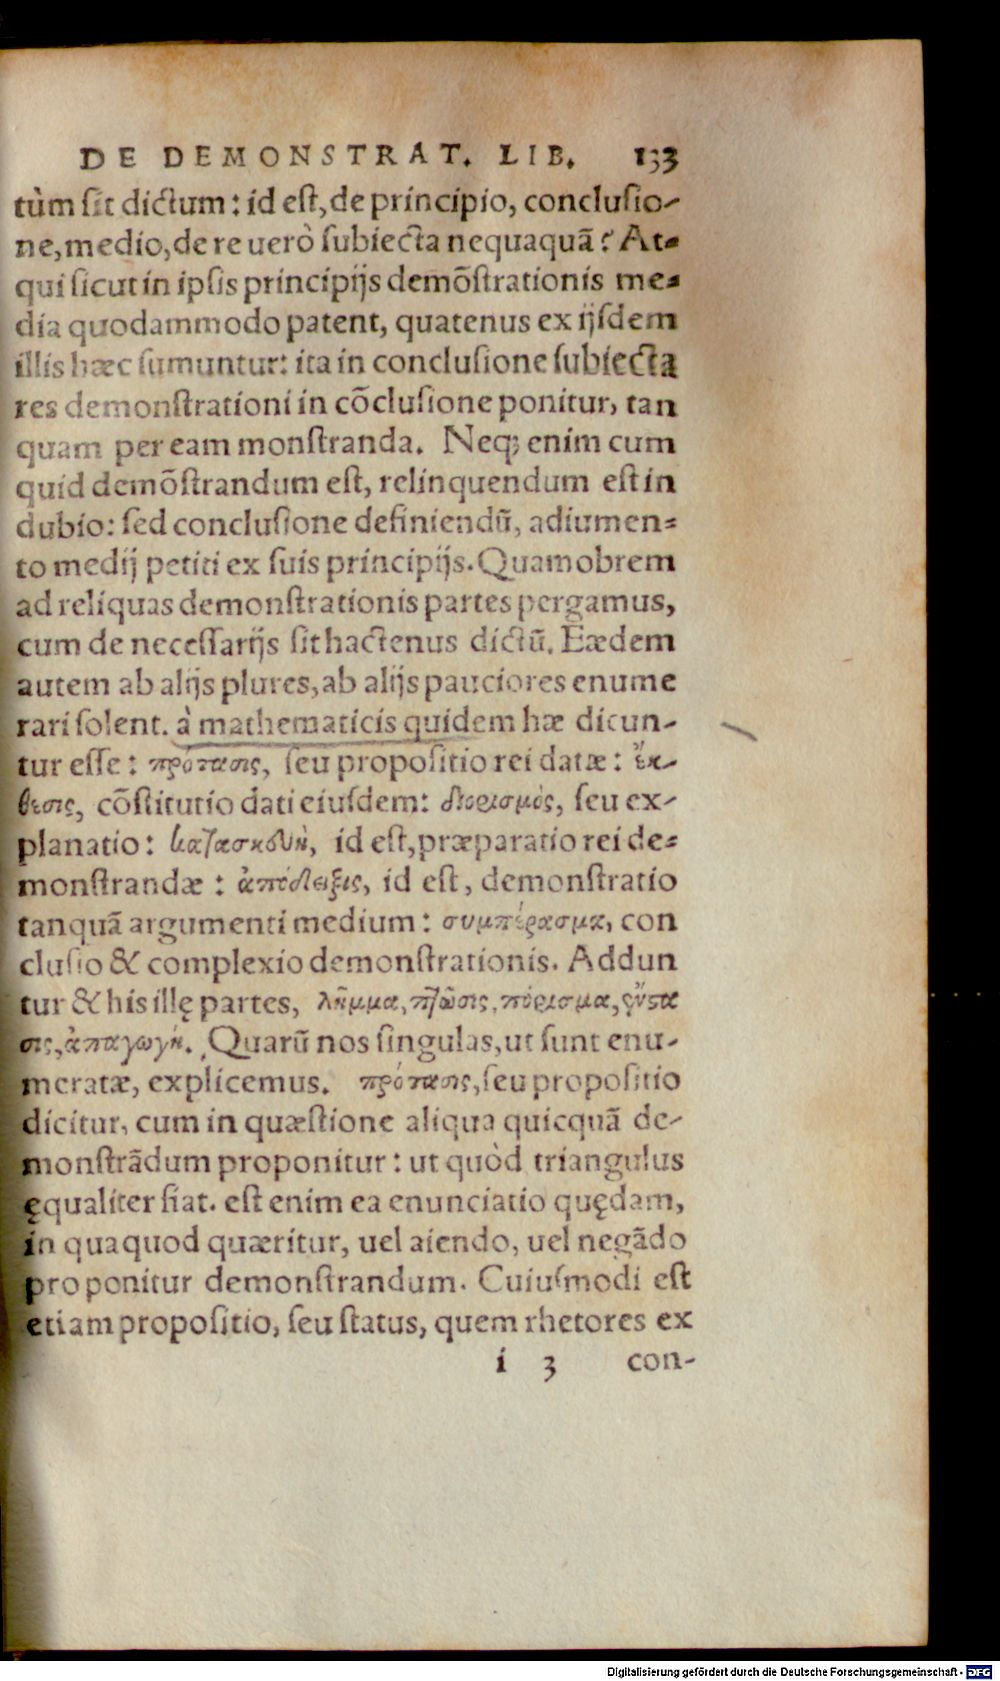 DE DEMONSTRAT. LIB. 133
tùm sit dictum: id est, de principio, conclusio-
ne, medio, de re uerò subiecta nequaquã? At-
qui sicut in ipsis principijs demõstrationis me-
dia quodammodo patent, quatenus ex ijsdem
illis hæc sumuntur: ita in conclusione subiecta
res demonstrationi in cõclusione ponitur, tan
quam per eam monstranda. Neq; enim cum
quid demõstrandum est, relinquendum est in
dubio: sed conclusione definiendũ, adiumen-
to medij petiti ex suis principijs. Quamobrem
ad reliquas demonstrationis partes pergamus,
cum de necessarijs sit hactenus dictũ. Eædem
autem ab alijs plures, ab alijs pauciores enume
rari solent. à mathematicis quidem hæ dicun-
tur esse: πρότασις, seu propositio rei datæ: ἔκ-
θεσις, cõstitutio dati eiusdem: διορισμὸς, seu ex-
planatio: κατασκευὴ, id est, præparatio rei de-
monstrandæ: ἀπόδειξις, id est, demonstratio
tanquã argumenti medium: συμπέρασμα, con
clusio & complexio demonstrationis. Addun
tur & his illę partes, λῆμμα, πτῶσις, πόρισμα, ἔνστα
σις, ἀπαγωγή. Quarũ nos singulas, ut sunt enu-
meratæ, explicemus. πρότασις, seu propositio
dicitur, cum in quæstione aliqua quicquã de-
monstrãdum proponitur: ut quòd triangulus
ęqualiter fiat. est enim ea enunciatio quędam,
in qua quod quæritur, uel aiendo, uel negãdo
proponitur demonstrandum. Cuiusmodi est
etiam propositio, seu status, quem rhetores ex
i 3 con-
Digitalisierung gefördert durch die Deutsche Forschungsgemeinschaft - DFG